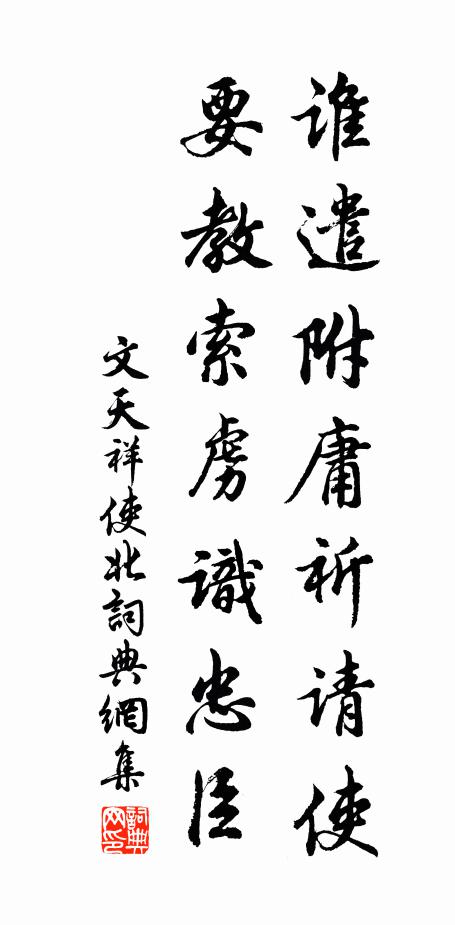 谁遣附庸祈请使
要教索虏識忠臣
文天祥使北詞典網集
詞典网印